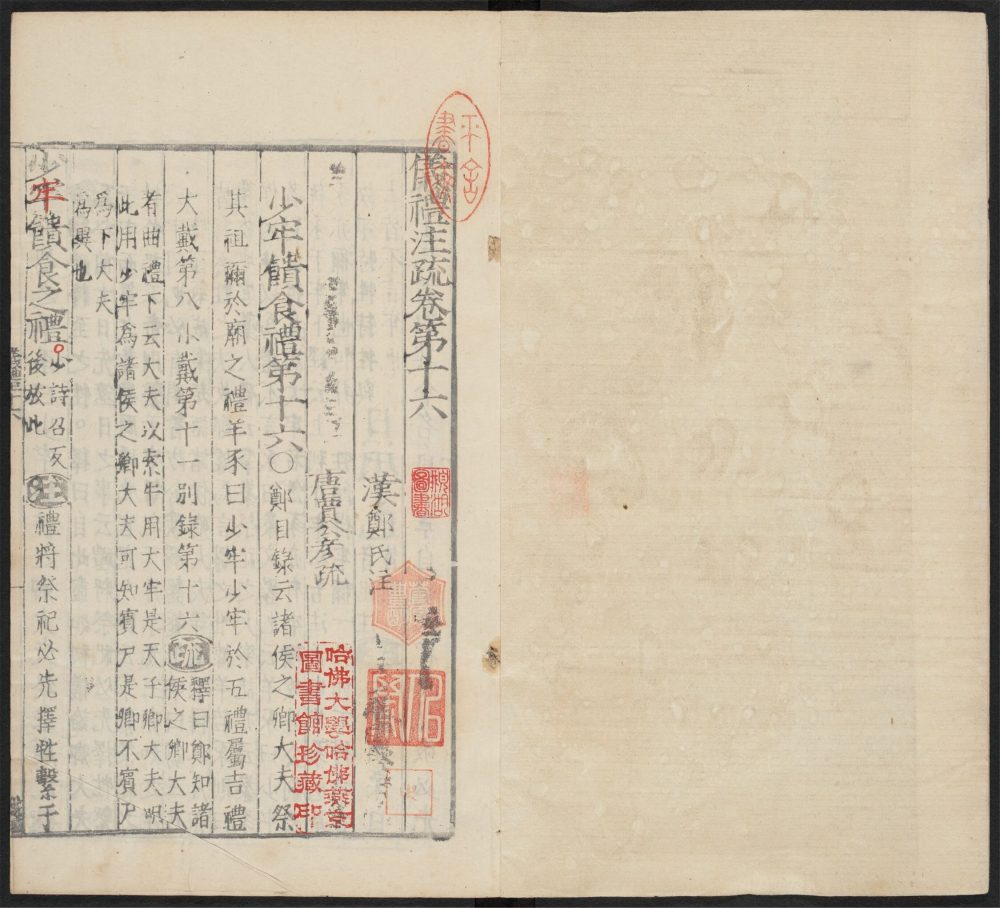 儀禮注疏卷第十六
漢鄭氏注
唐賈公彦疏
少牢饋食禮第十六〇鄭目録云諸侯之卿大夫祭
其祖禰於廟之禮羊豕曰少牢少牢於五禮屬吉禮
大戴第八小戴第十一别録第十六疏釋曰鄭知諸
侯之卿大夫
者曲禮下云大夫以索牛用大牢是天子卿大夫明
此用少牢爲諸侯之卿大夫可知賓尸是卿不賓尸
爲下大夫
爲異也
少牢饋食之禮
少詩召反
後放此
注禮將祭祀必先擇牲繫于
哈佛大學哈佛燕京
圖書館珍藏印
圖書